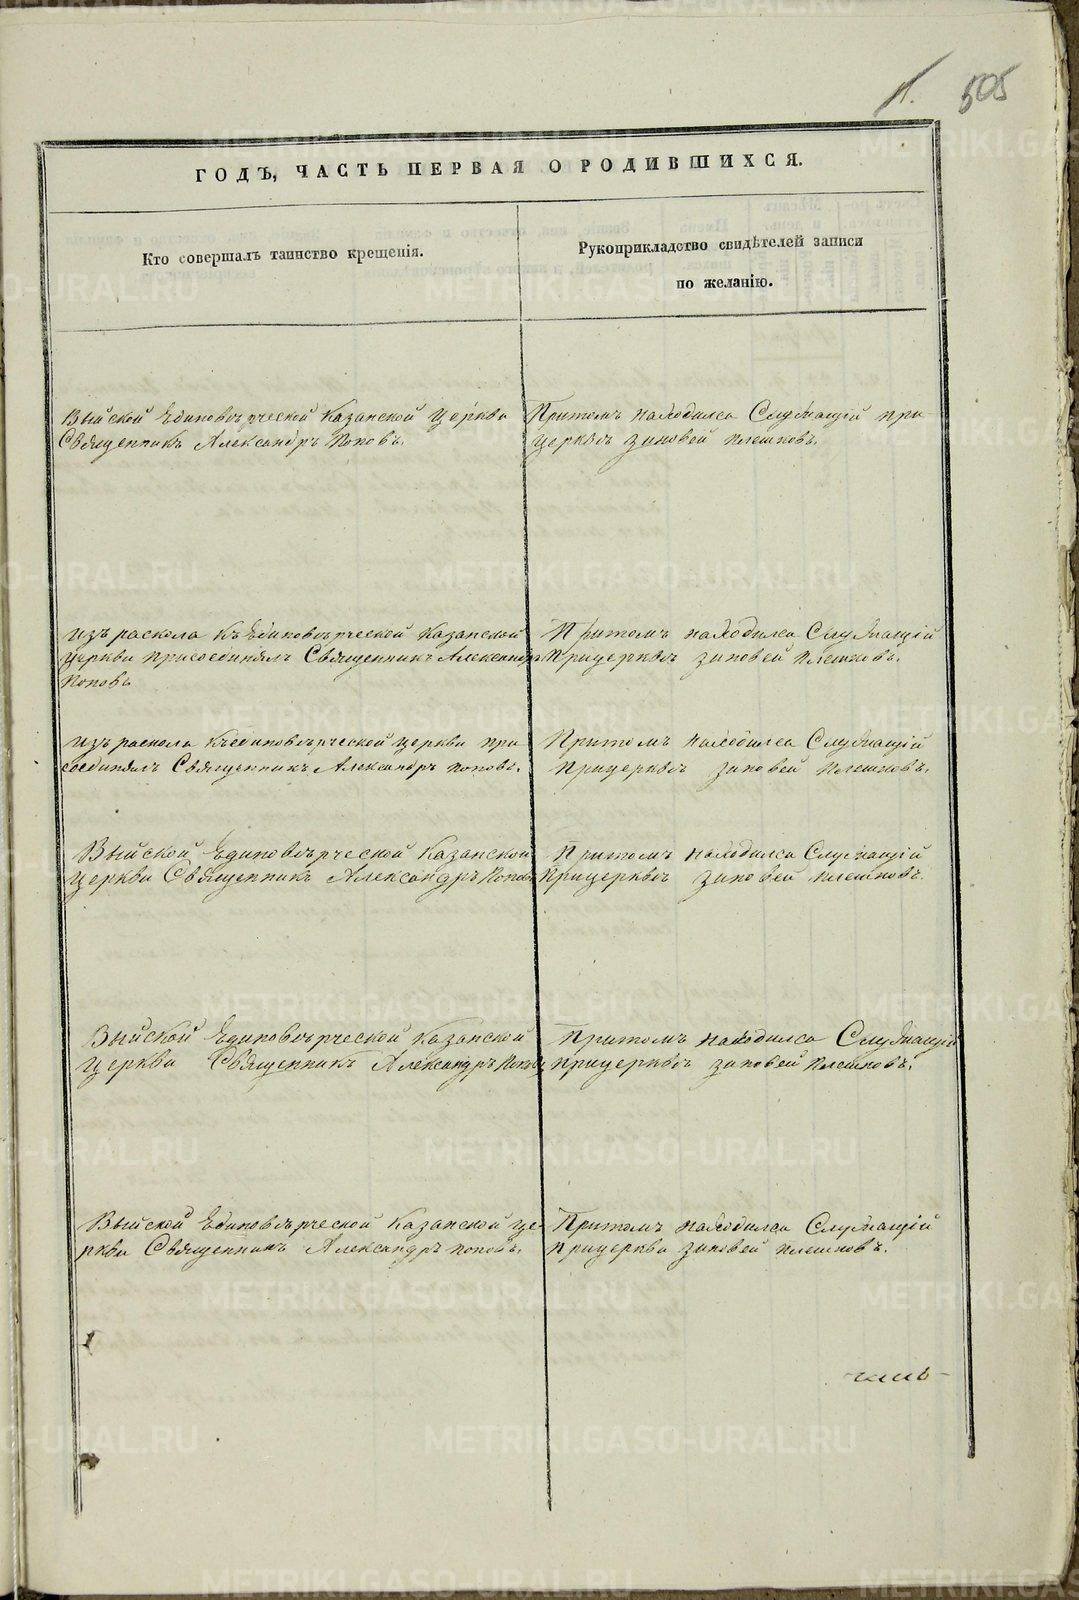 505
ГОДЪ, ЧАСТЬ ПЕРВАЯ О РОДИВШИХСЯ.
Кто совершалъ таинство крещенія.
Рукоприкладство свидѣтелей записи
по желанію.
Выйской Единовѣрческой Казанской Церкви
Священникъ Александръ Поповъ.
Притомъ находился Служащій при
церквѣ Зиновей Плешковъ.
Изъ раскола къ Единовѣрческой Казанской
Церкви присоединялъ Священникъ Александръ
Поповъ
Притомъ находился Служащій
При церквѣ Зиновей Плешковъ.
Изъ раскола къ единовѣрческой церкви при
соединялъ Священникъ Александръ Поповъ.
Притомъ находился Служащій
При церквѣ Зиновей Плешковъ.
Выйской Единовѣрческой Казанской
Церкви Священникъ Александръ Поповъ
Притомъ находился Служащій
При церквѣ Зиновей Плешковъ.
Выйской Единовѣрческой Казанской
Церкви Священникъ Александръ Поповъ
Притомъ находился Служащій
при церквѣ Зиновей Плешковъ.
Выйской Единовѣрческой Казанской Це-
ркви Священникъ Александръ Поповъ.
Притомъ находился Служащій
При церкви Зиновей Плешковъ.
METRIKI.GASO-URAL.RU